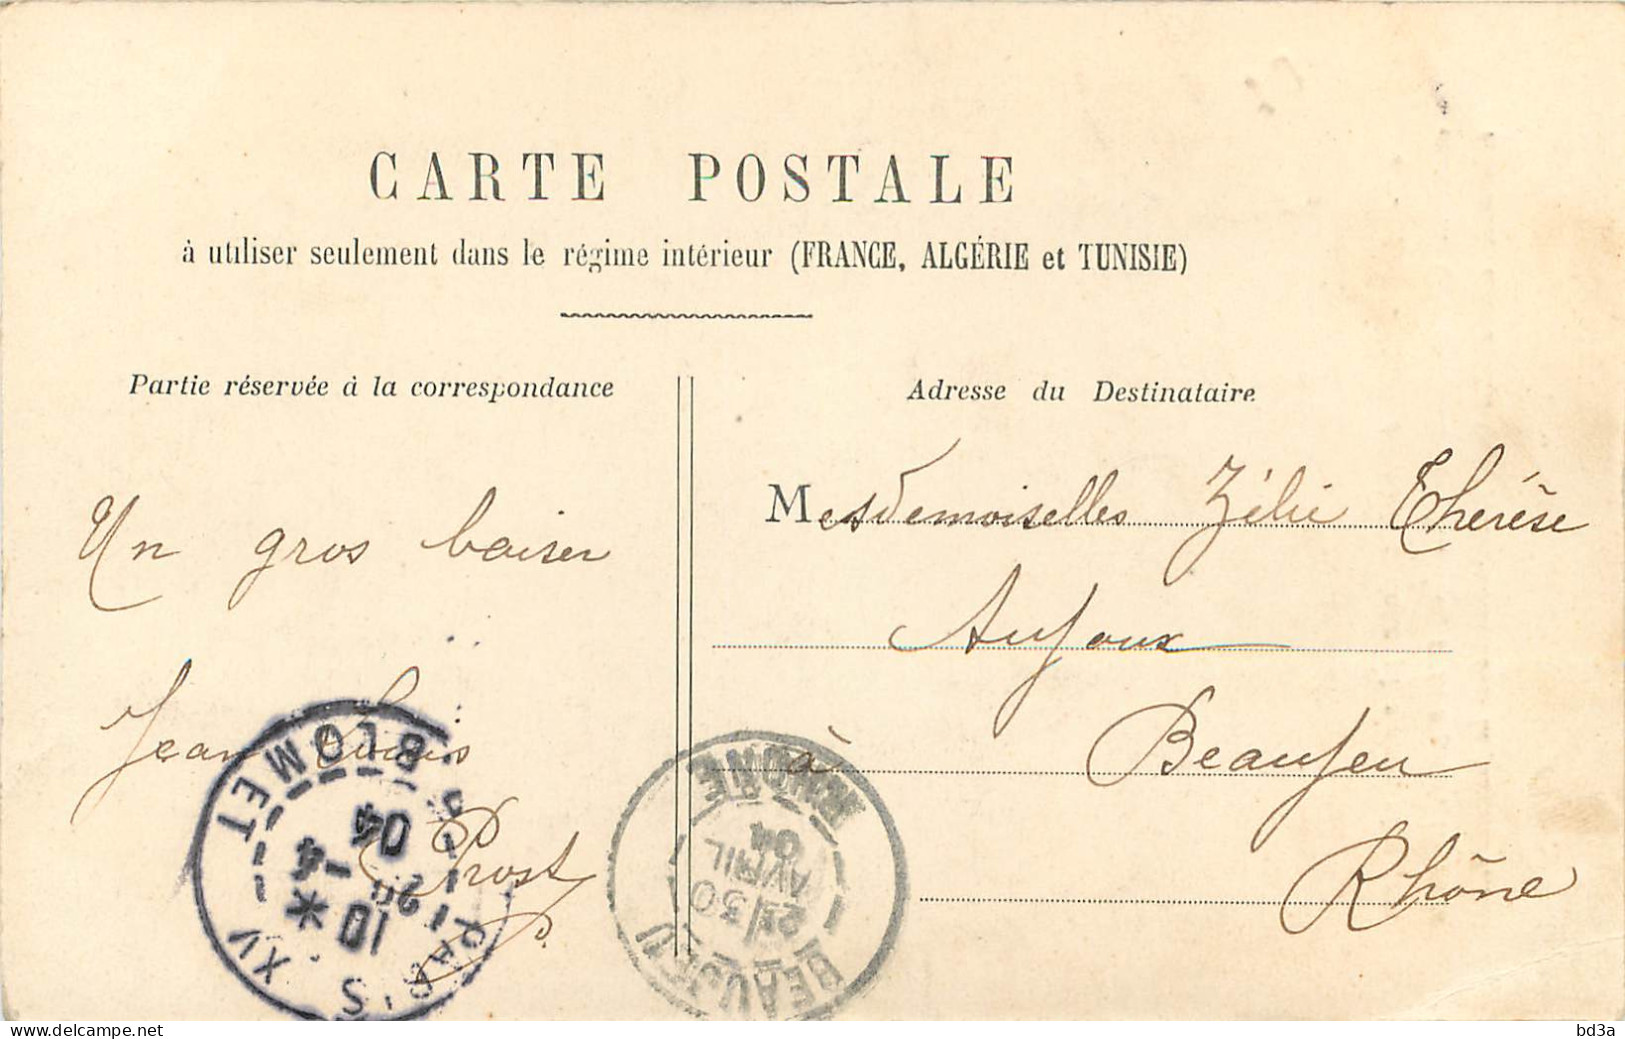 CARTE POSTALE
à utiliser seulement dans le régime intérieur (FRANCE, ALGÉRIE et TUNISIE)
Partie réservée à la correspondance
Un gros baiser
Jean Louis
Prost
Adresse du Destinataire
Mesdemoiselles Zélie Thérèse
Aujoux
à Beaujeu
Rhône
PARIS XV BLOMET
10 * -4
04
BEAUJEU RHONE
30
AVRIL
04
delcampe.net
bd3a